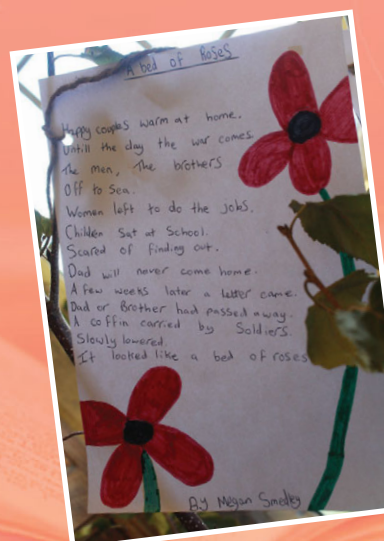 A bed of Roses
Happy couples warm at home.
Untill the day the war comes
The men, The brothers
Off to Sea.
Women left to do the jobs.
Children Sat at School.
Scared of finding out.
Dad will never come home.
A few weeks later a letter came.
Dad or Brother had passed away.
A coffin carried by Soldiers.
Slowly lowered.
It looked like a bed of roses
By Megan Smedley